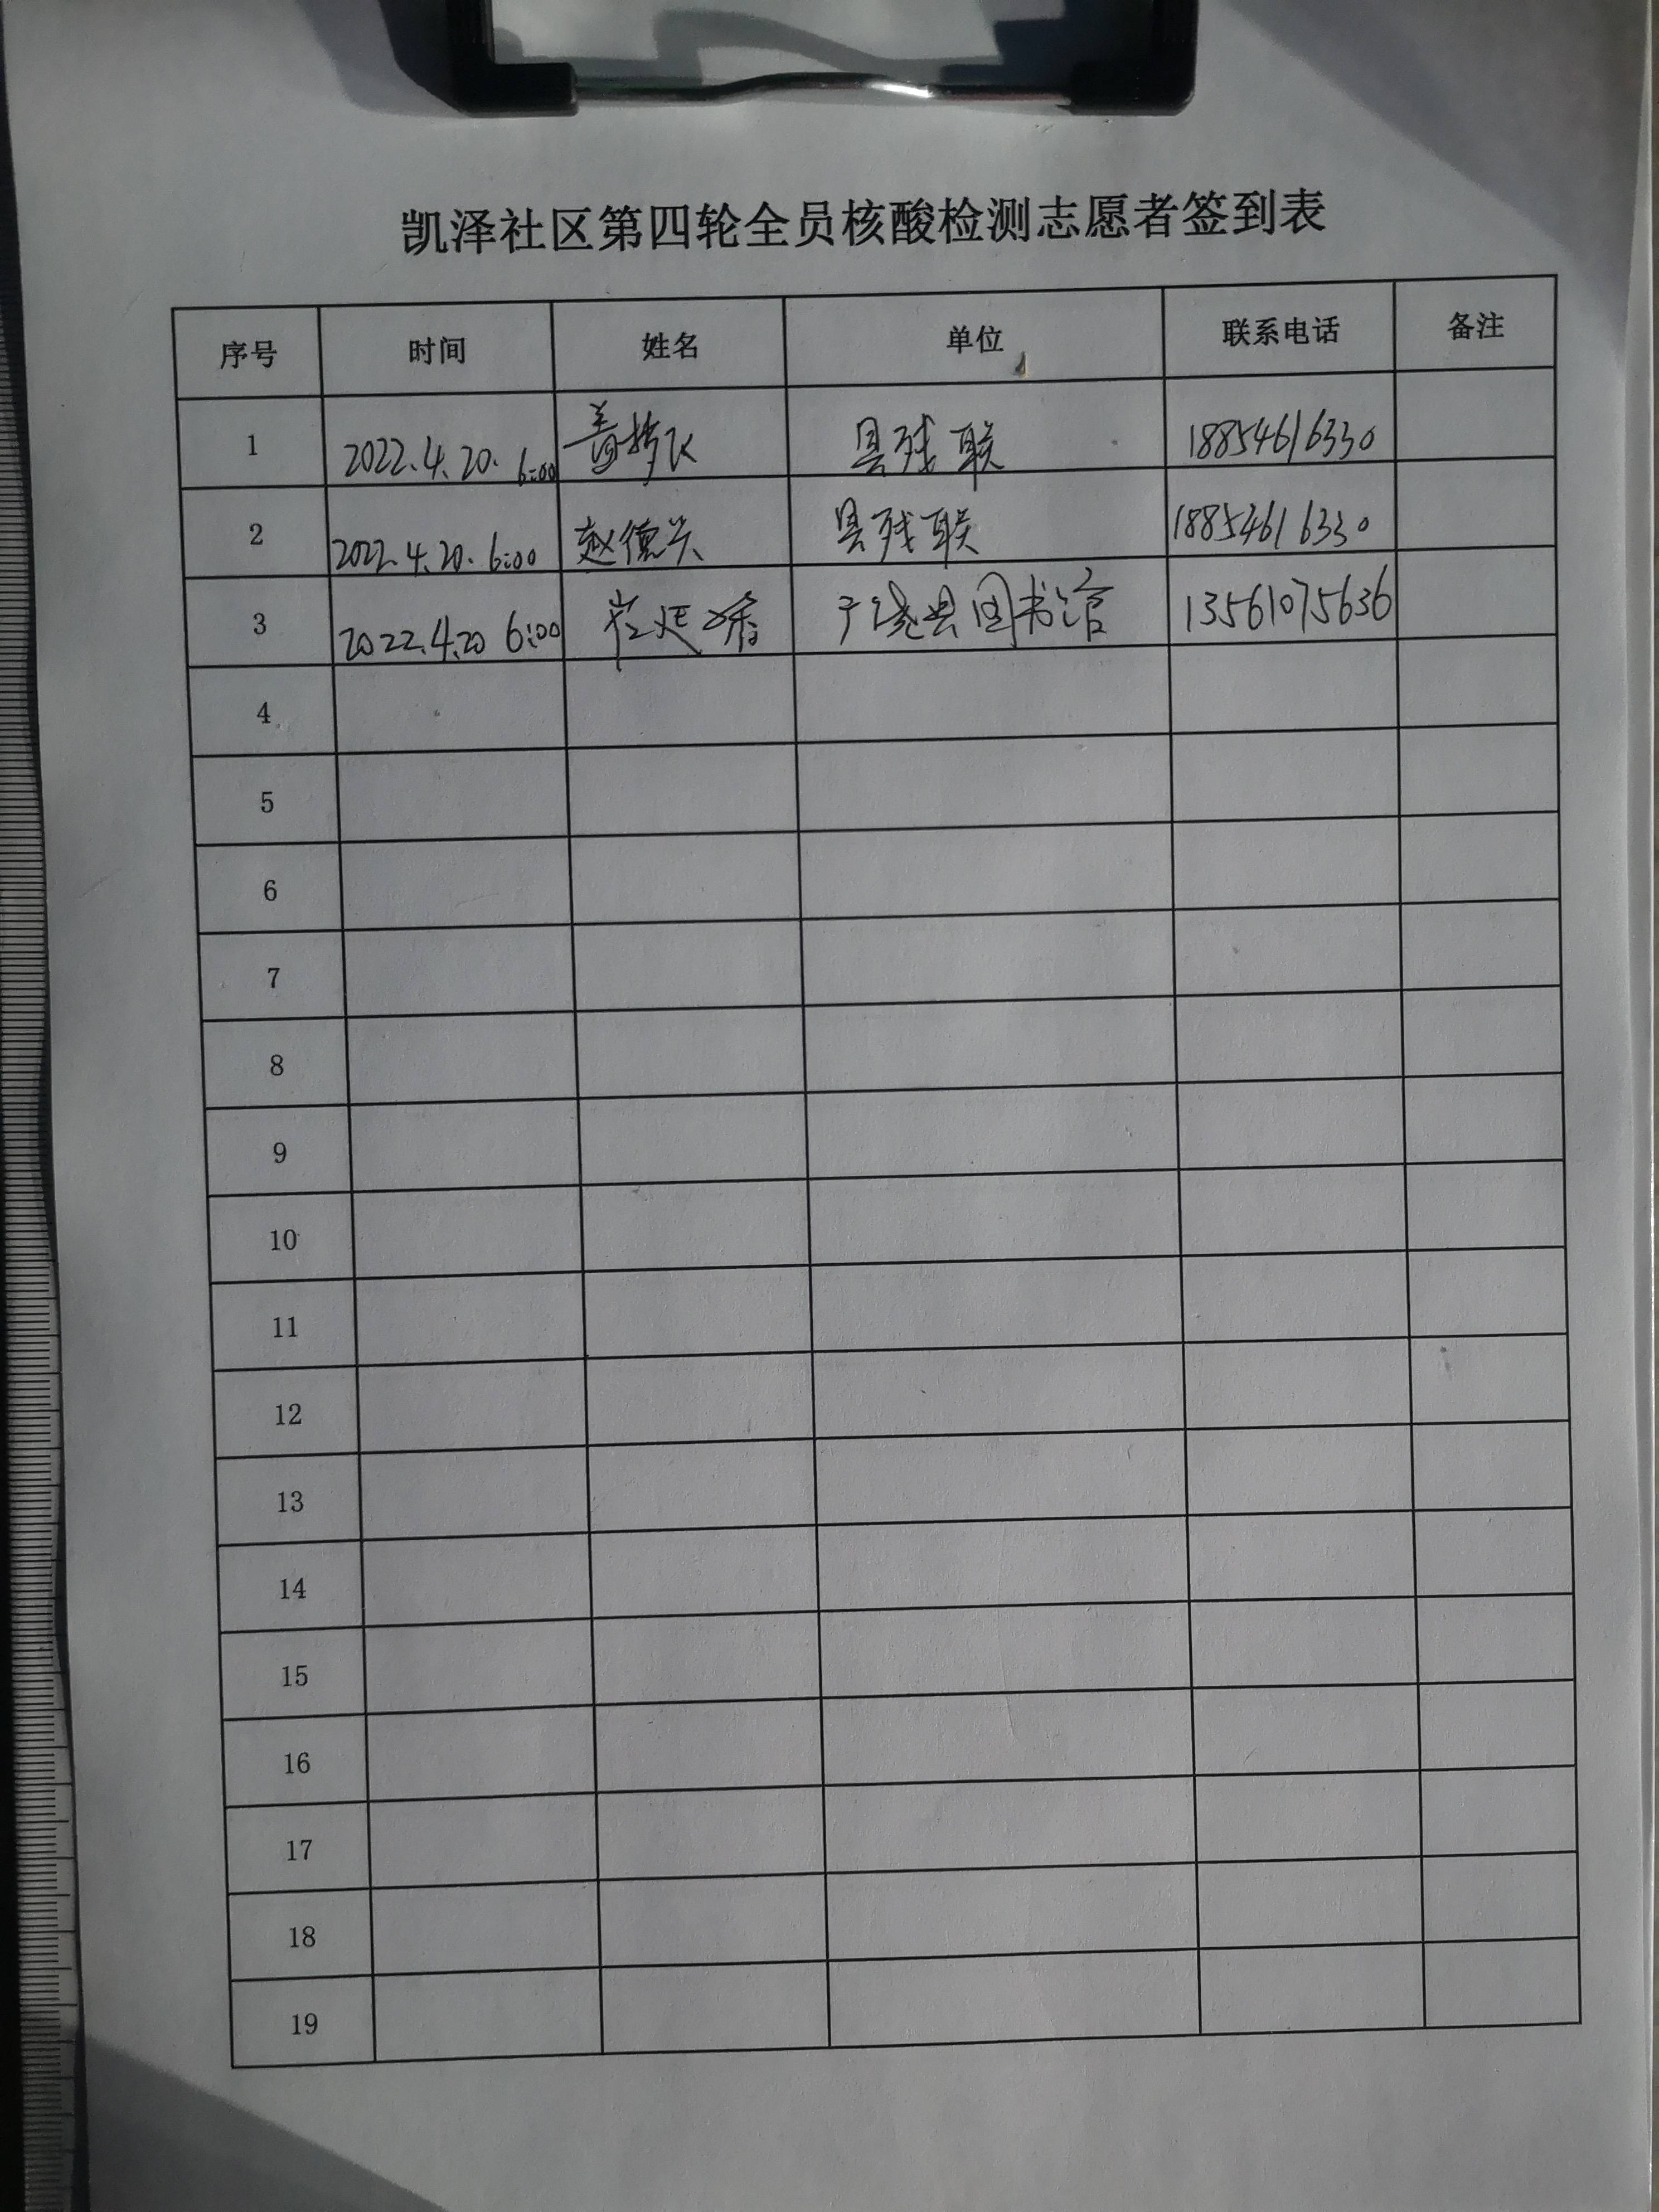 凯泽社区第四轮全员核酸检测志愿者签到表
序号 时间 姓名 单位 联系电话 备注
1 2022.4.20. 6:00 县残联 18854616330
2 2022.4.20. 6:00 赵德兴 县残联 18854616330
3 2022.4.20 6:00 崔延 广饶县图书馆 13561075636
4
5
6
7
8
9
10
11
12
13
14
15
16
17
18
19